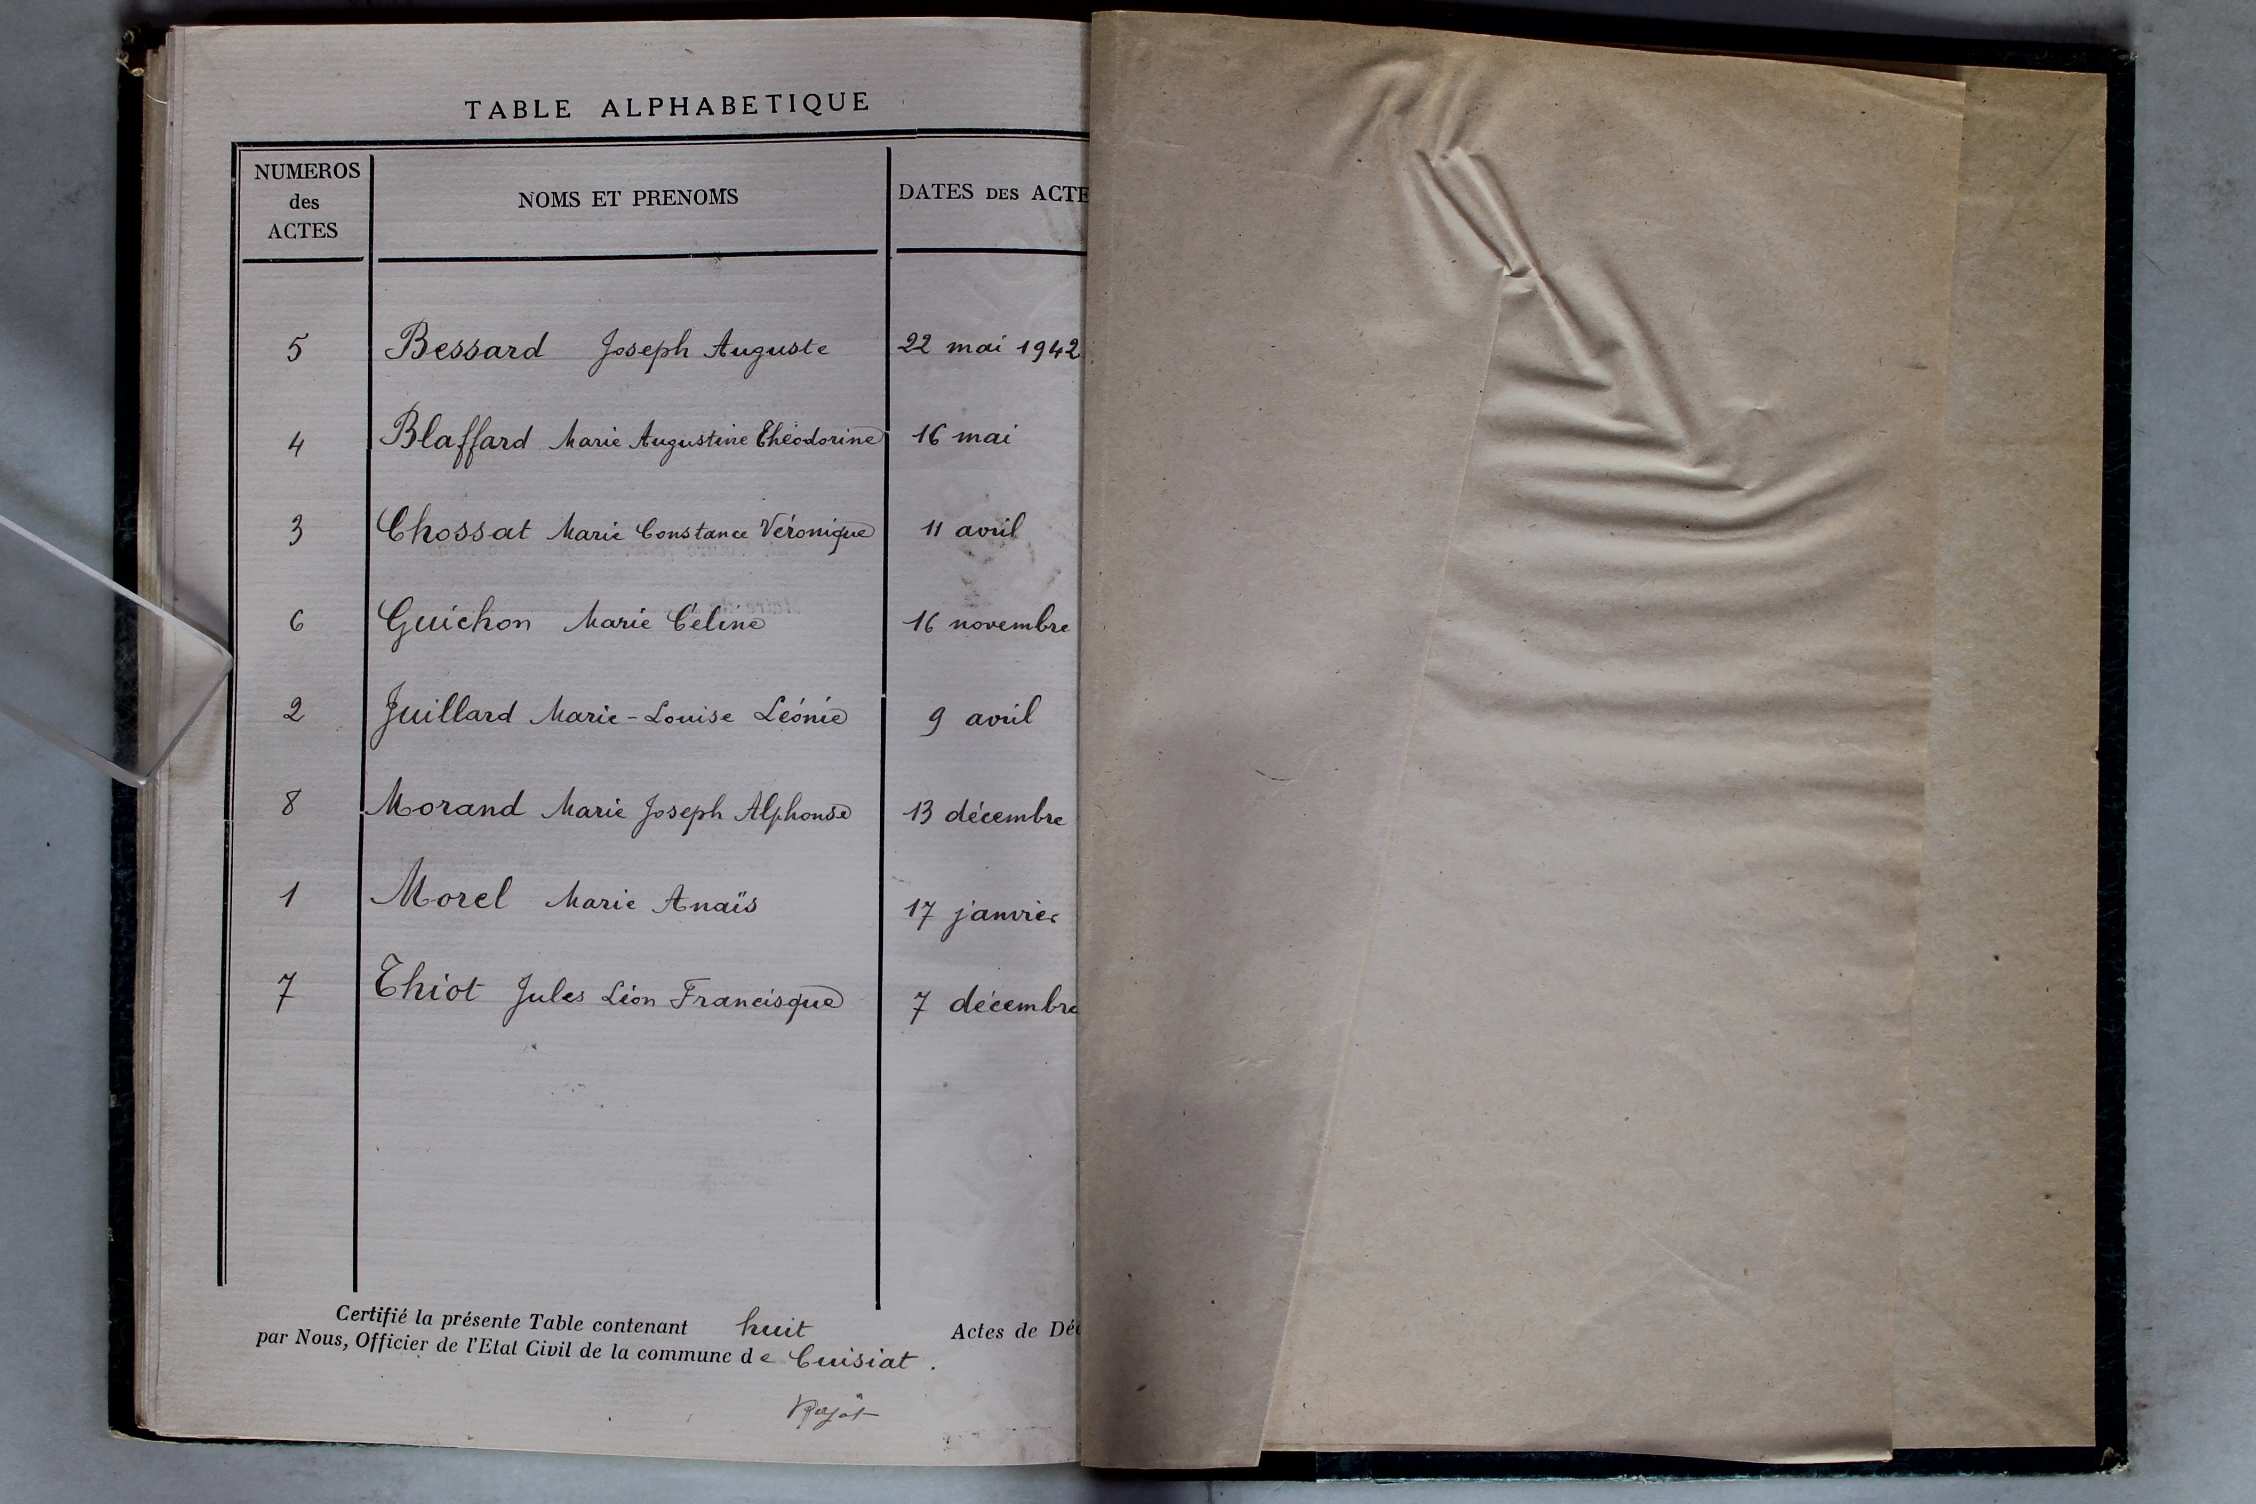 TABLE ALPHABETIQUE
NUMEROS des ACTES NOMS ET PRENOMS DATES DES ACTE
5 Bessard Joseph Auguste 22 mai 1942
4 Blaffard Marie Augustine Théodorine 16 mai
3 Chossat Marie Constance Véronique 11 avril
6 Guichon Marie Céline 16 novembre
2 Juillard Marie-Louise Léonie 9 avril
8 Morand Marie Joseph Alphonse 13 décembre
1 Morel Marie Anaïs 17 janvier
7 Thiot Jules Léon Francisque 7 décembre
Certifié la présente Table contenant huit Actes de Déc
par Nous, Officier de l'Etat Civil de la commune de Cuisiat.